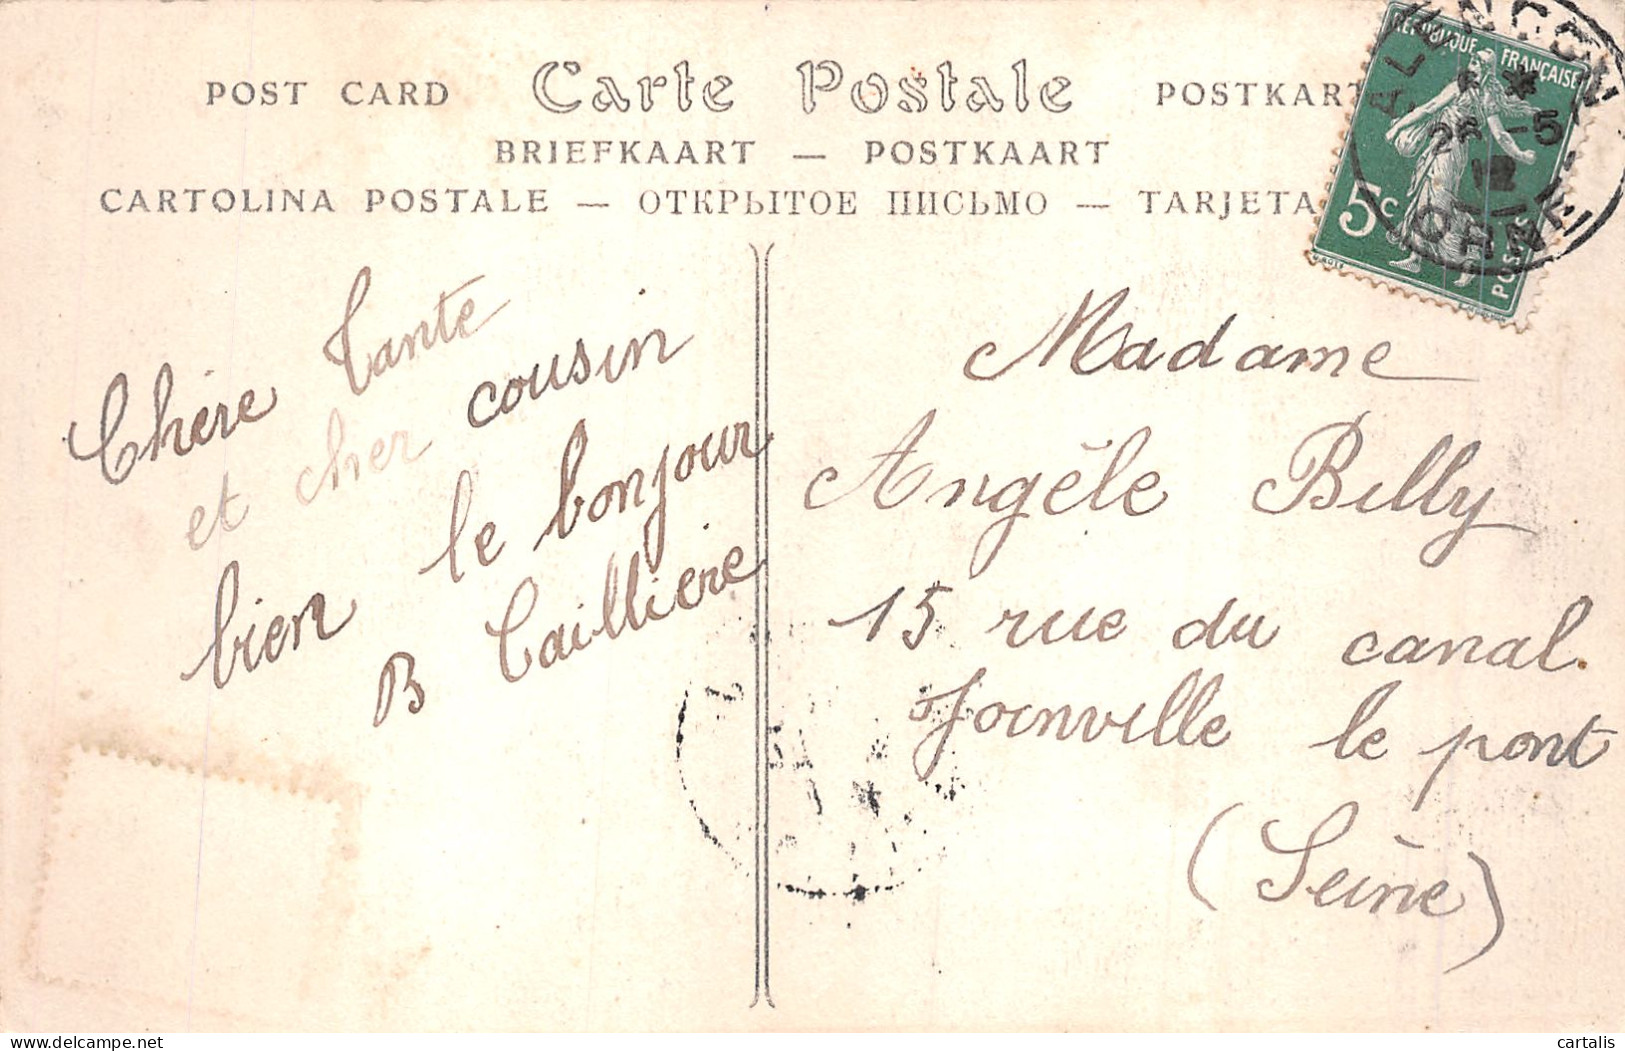 POST CARD Carte Postale POSTKART
BRIEFKAART — POSTKAART
CARTOLINA POSTALE — ОТКРЫТОЕ ПИСЬМО — TARJETA
REPUBLIQUE FRANÇAISE
5c
POSTES
ALENÇON
26 -5
ORNE
Chère Tante
et cher cousin
bien le bonjour
B Cailliere
Madame
Angèle Billy
15 rue du canal.
Joinville le pont
(Seine)
cartalis